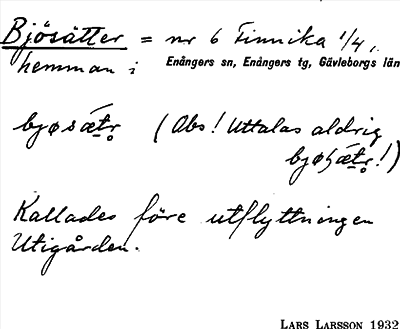 Bjösätter = nr 6 Finnika 1/4,
hemman i Enångers sn, Enångers tg, Gävleborgs län
bjøsǽtr̥ (Obs! Uttalas aldrig
bjøʂǽtr̥!)
Kallades före utflyttningen
Utigården.
LARS LARSSON 1932